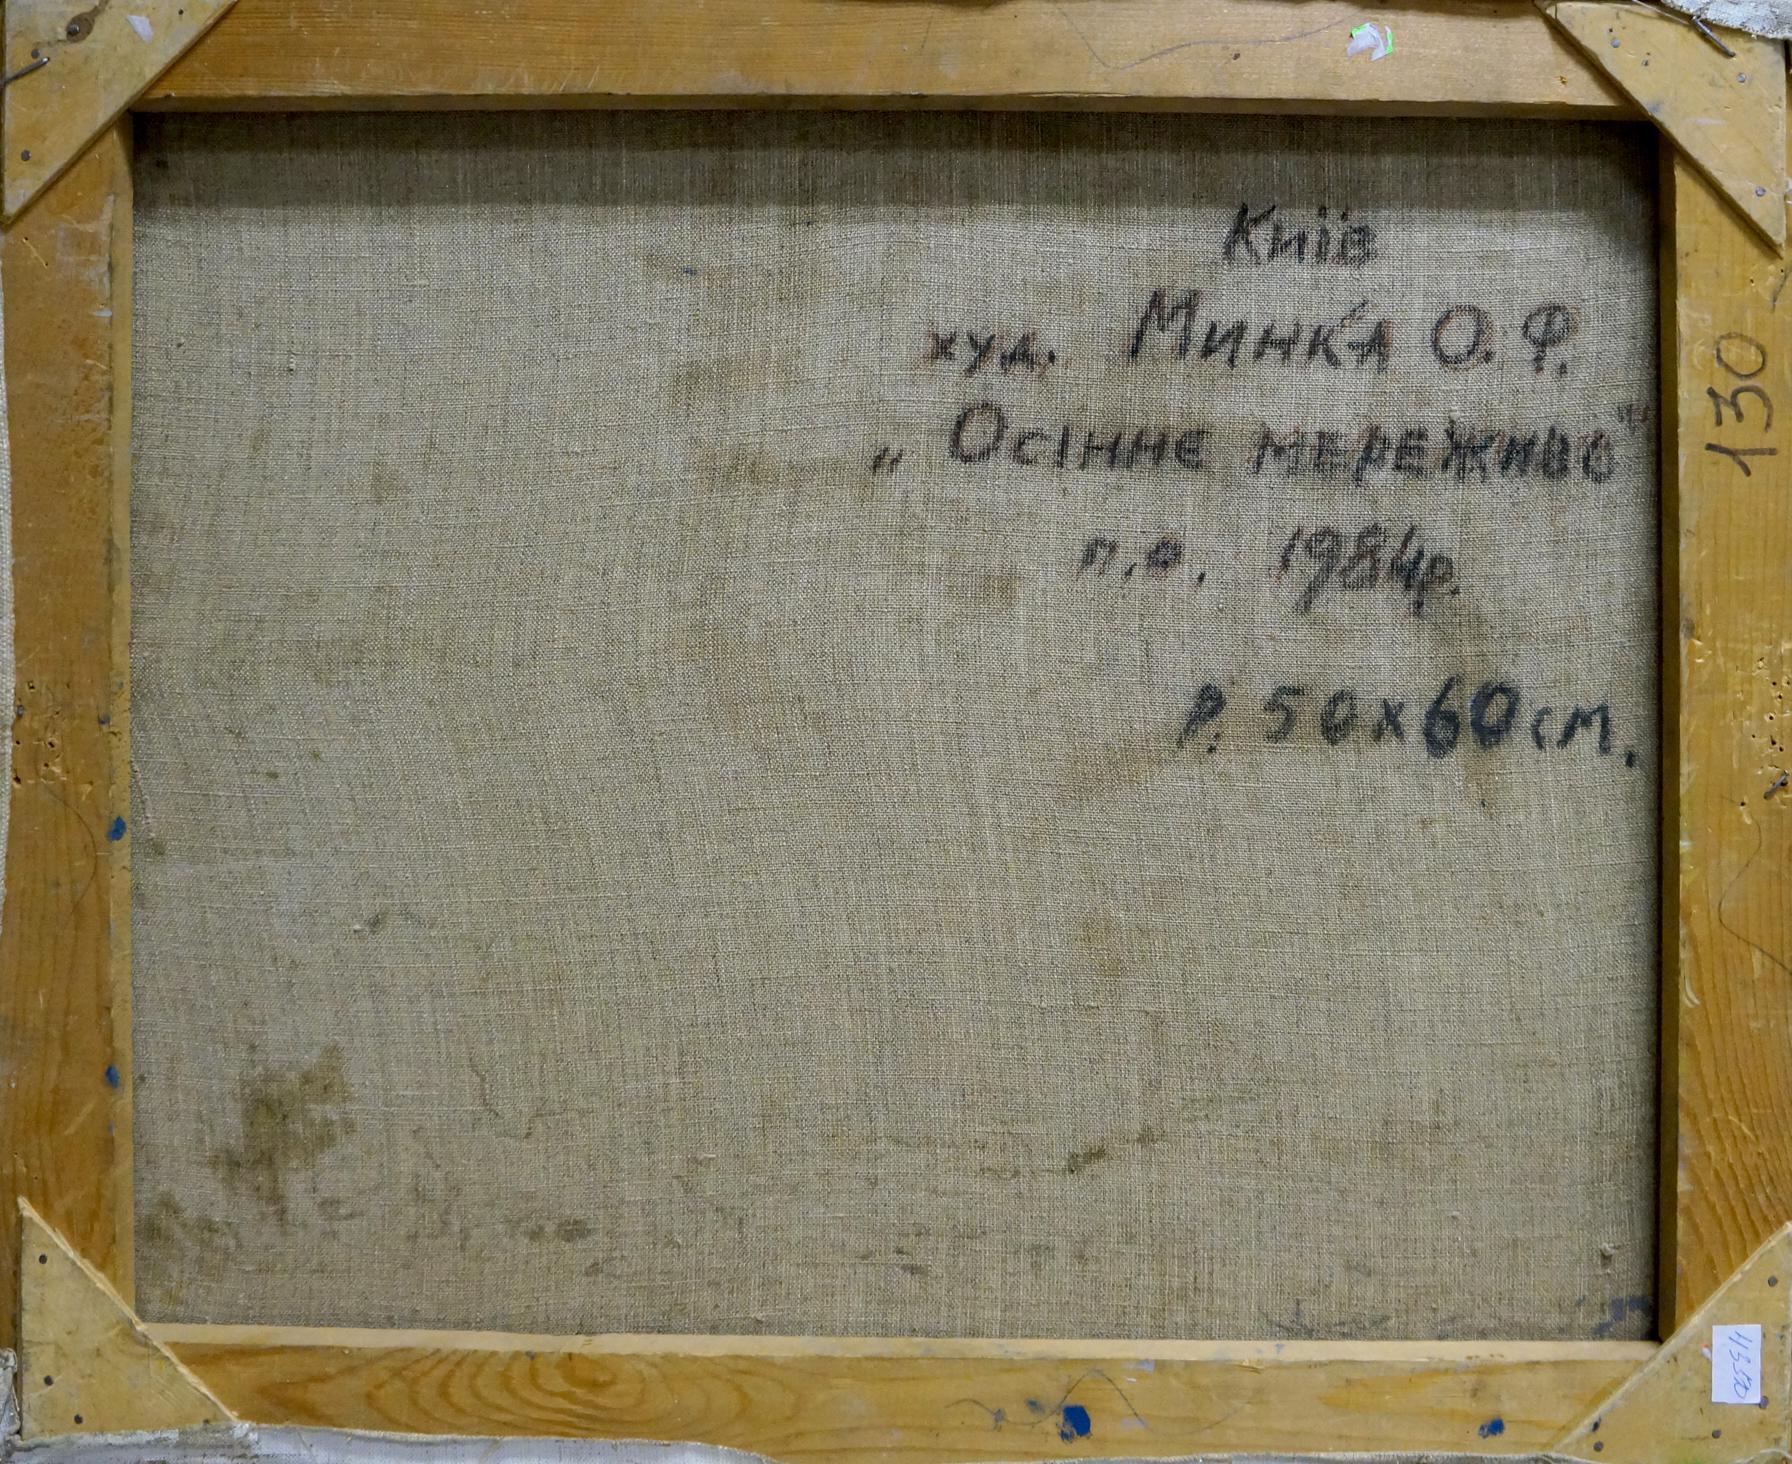 Київ
худ. Минка О. Ф.
„ Осіннє мереживо"
п.о. 1984р.
Р. 50х60см.
130